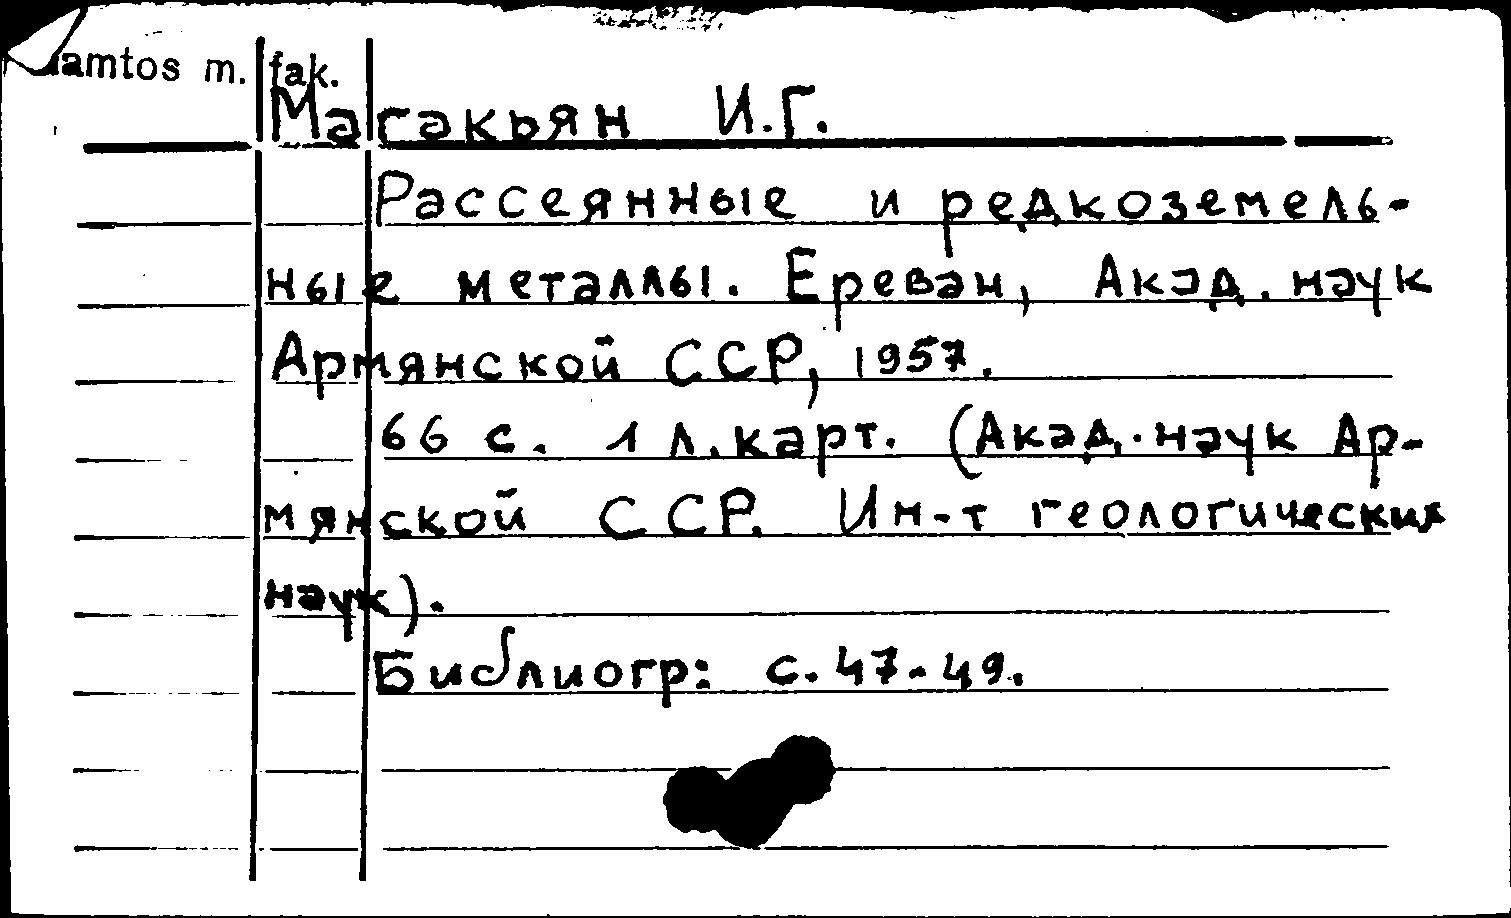 Gamtos m. fak.
Магакьян И.Г.
Рассеянные и редкоземель-
ные металлы. Ереван, Акад. наук
Армянской ССР, 1957.
66 с. 1 л. карт. (Акад. наук Ар-
мянской ССР. Ин-т геологических
наук).
Библиогр: с. 47-49.